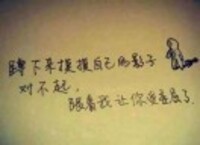 蹲下来摸摸自己的影子
对不起,
跟着我让你受委屈了